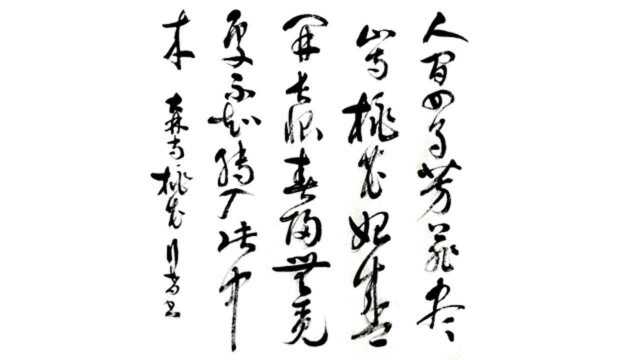 人间四月芳菲尽
山寺桃花始盛
开长恨春归無觅
处不知转入此中
来 大林寺桃花